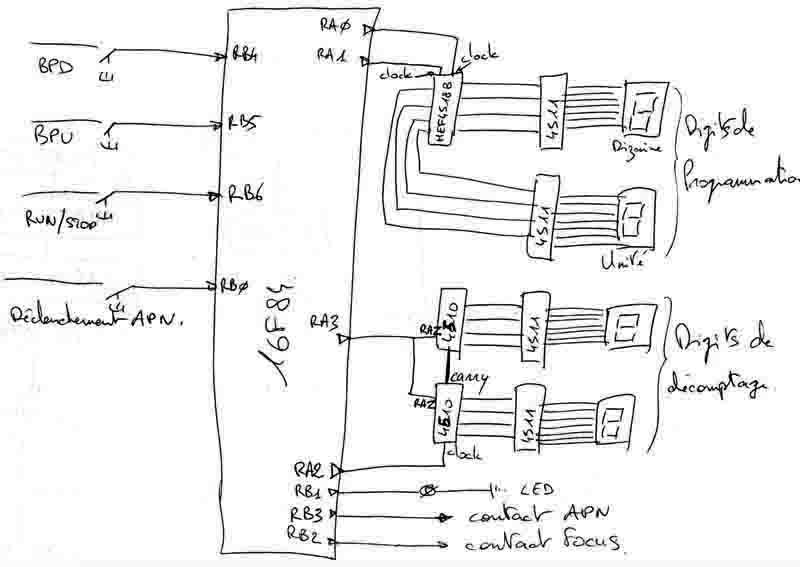 RA0
RA1
clock
clock
RB4
BPD
HEF4518B
4511
Dizaine
Digits de
Programmation
RB5
BPU
RB6
RUN/STOP
4511
Unité
RB0
Déclenchement APN.
16F84
RA3
RAZ
4510
4511
Digits de
décomptage.
carry
RAZ
4510
4511
clock
RA2
RB1
LED
RB3
contact APN
RB2
contact Focus.